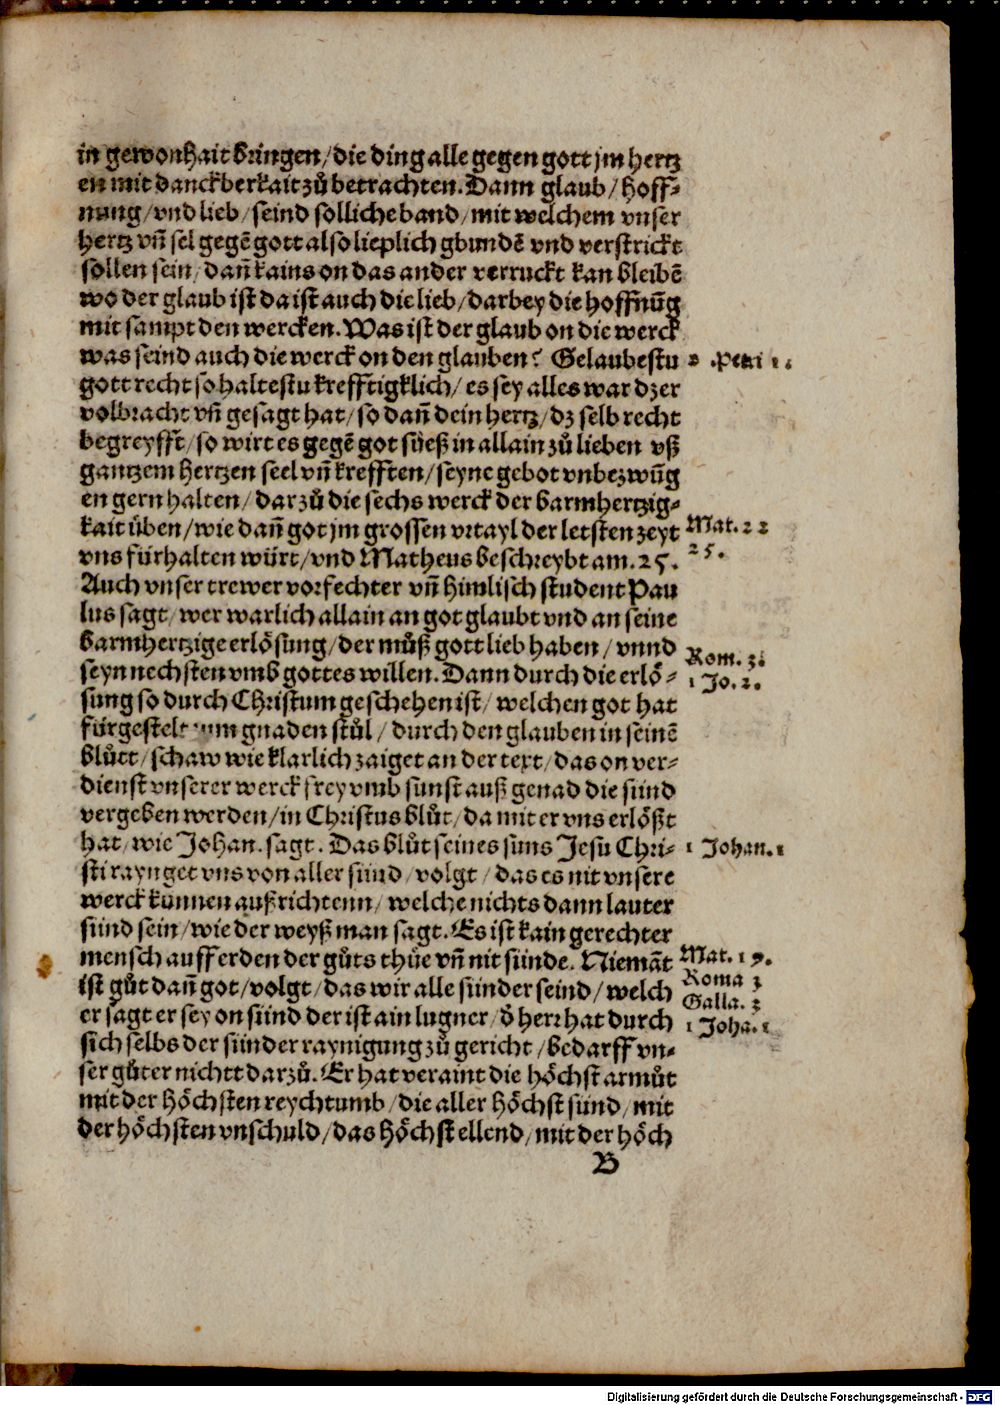 in gewonhait bringen/die ding alle gegen gott jm hertz
en mit danckberkait zů betrachten. Dann glaub/hoff-
nung/vnd lieb/seind solliche band/mit welchem vnser
hertz vñ sel gegē gott also lieplich gbundē vnd verstrickt
sollen sein/dañ kains on das ander verruckt kan bleibē
wo der glaub ist da ist auch die lieb/darbey die hoffnūg
mit sampt den wercken. Was ist der glaub on die werck
was seind auch die werck on den glauben? Gelaubestu 2 .Petri 1.
gott recht so haltestu krefftigklich/es sey alles war dz er
volbracht vñ gesagt hat/so dañ dein hertz/dz selb recht
begreyfft/so wirt es gegē got süeß in allain zů lieben vß
gantzem hertzen seel vñ krefften/seyne gebot vnbezwūg
en gern halten/darzů die sechs werck der barmhertzig-
kait üben/wie dañ got jm grossen vrtayl der letsten zeyt Mat. 22
vns fürhalten würt/vnd Matheus beschreybt am. 25. 25.
Auch vnser trewer vorfechter vñ himlisch student Pau
lus sagt/wer warlich allain an got glaubt vnd an seine
barmhertzige erlösung/der můß gott lieb haben/vnnd
seyn nechsten vmb gottes willen. Dann durch die erlö- Rom. 3.
sung so durch Christum geschehen ist/welchen got hat 1 Jo. 2.
fürgestelt zum gnaden stůl/durch den glauben in seinē
blůtt/schaw wie klarlich zaiget an der text/das on ver-
dienst vnserer werck frey vmb sunst auß genad die sünd
vergeben werden/in Christus blůt/da mit er vns erlößt
hat/wie Johan. sagt. Das blůt seines suns Jesu Chri- 1 Johan. 1
sti raynget vns von aller sünd/volgt/das es nit vnsere
werck künnen außrichtenn/welche nichts dann lauter
sünd sein/wie der weyß man sagt. Es ist kain gerechter
mensch auff erden der gůts thůe vñ nit sünde. Niemāt Mat. 19.
ist gůt dañ got/volgt/das wir alle sünder seind/welch Roma 3
er sagt er sey on sünd der ist ain lugner/d̄ herr hat durch Galla. 3
sich selbs der sünder raynigung zů gericht/bedarff vn- 1 Joha. 1
ser gůter nichtt darzů. Er hat veraint die höchst armůt
mit der höchsten reychtumb/die aller höchst sünd/mit
der höchsten vnschuld/das höchst ellend/mit der höch
B
Digitalisierung gefördert durch die Deutsche Forschungsgemeinschaft - DFG